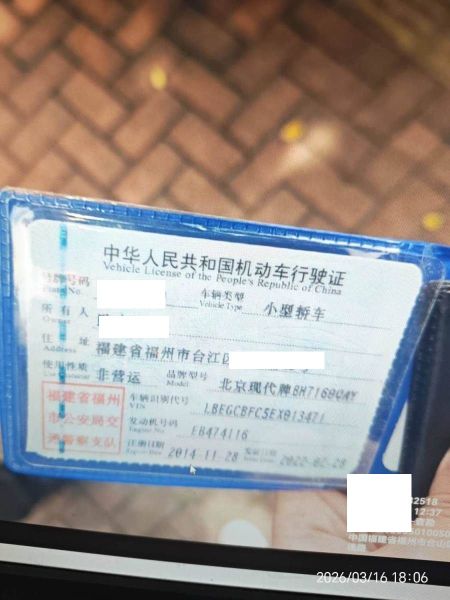 中华人民共和国机动车行驶证
Vehicle License of the People's Republic of China
号牌号码
车辆类型 小型轿车
Vehicle Type
所有人
Owner
住址 福建省福州市台江区
Address
使用性质 非营运 品牌型号 北京现代牌BH7160QAY
Model
福建省福州
市公安局交
通警察支队
车辆识别代号
VIN
发动机号码 EB474116
Engine No.
注册日期 2014-11-28 发证日期 2022-02-28
Issue Date
82518
12:37
2026/03/16 18:06